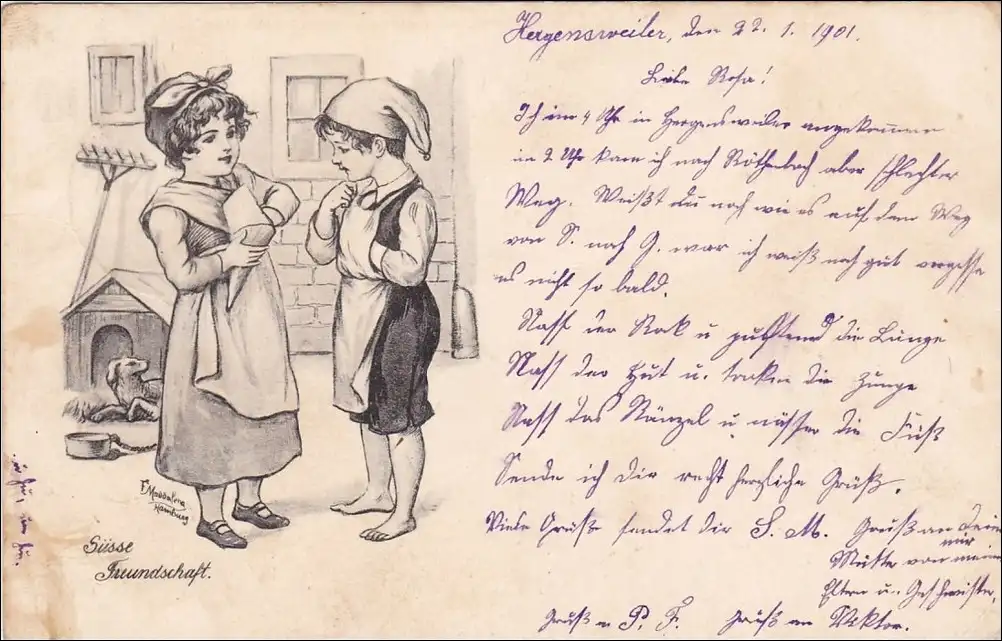 Hergensweiler, den 22. 1. 1901.
Liebe Rosa!
Ich um 4 Uhr in Hergensweiler angekommen
um 2 Uhr kam ich nach Röthenbach aber schlechter
Weg. Weißt du noch wie es auf dem Weg
von S. nach G. war ich weiß noch gut vergesse
es nicht so bald.
Naß der Rok u. die Lunge
Naß der Hut u. troken die Zunge
Naß das Ränzel u. nässer die Füß
Sende ich dir recht herzliche Grüß.
Viele Grüße sendet dir S. M. Gruß an deine
Mutter von mir
meine
Eltern u. Geschwister,
Gruß a P. F. Gruß an Viktor.
F. Maddalena
Hamburg
Süsse
Freundschaft.